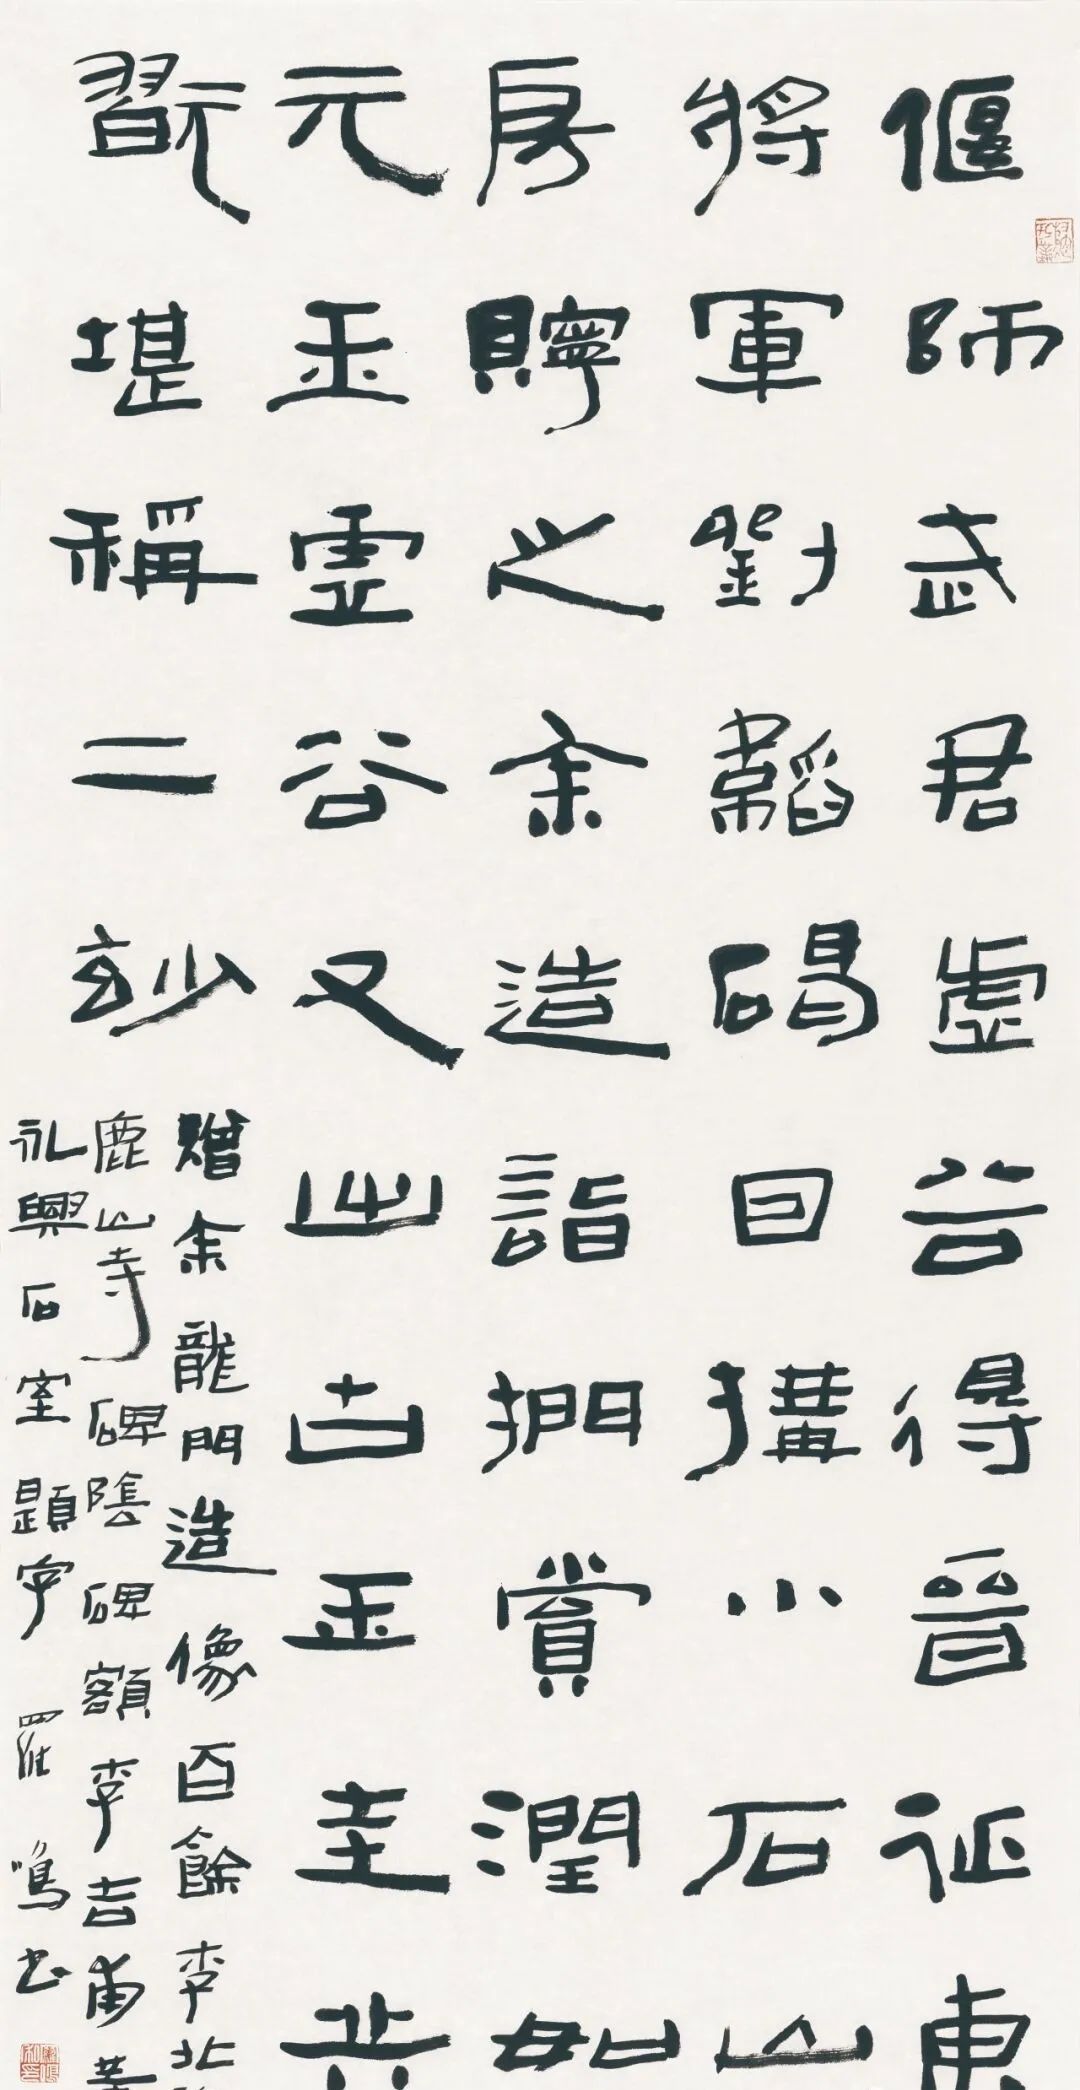 偃師武君虛谷得晉征東
將軍劉韜碣囙搆小石山
房貯之余造詣捫賞潤如
元玉霊谷又出古玉圭共
翫堪稱二玅
贈余龍門造像百餘李北
鹿山寺碑陰碑額李吉甫
永興石室題字 羅鳴書